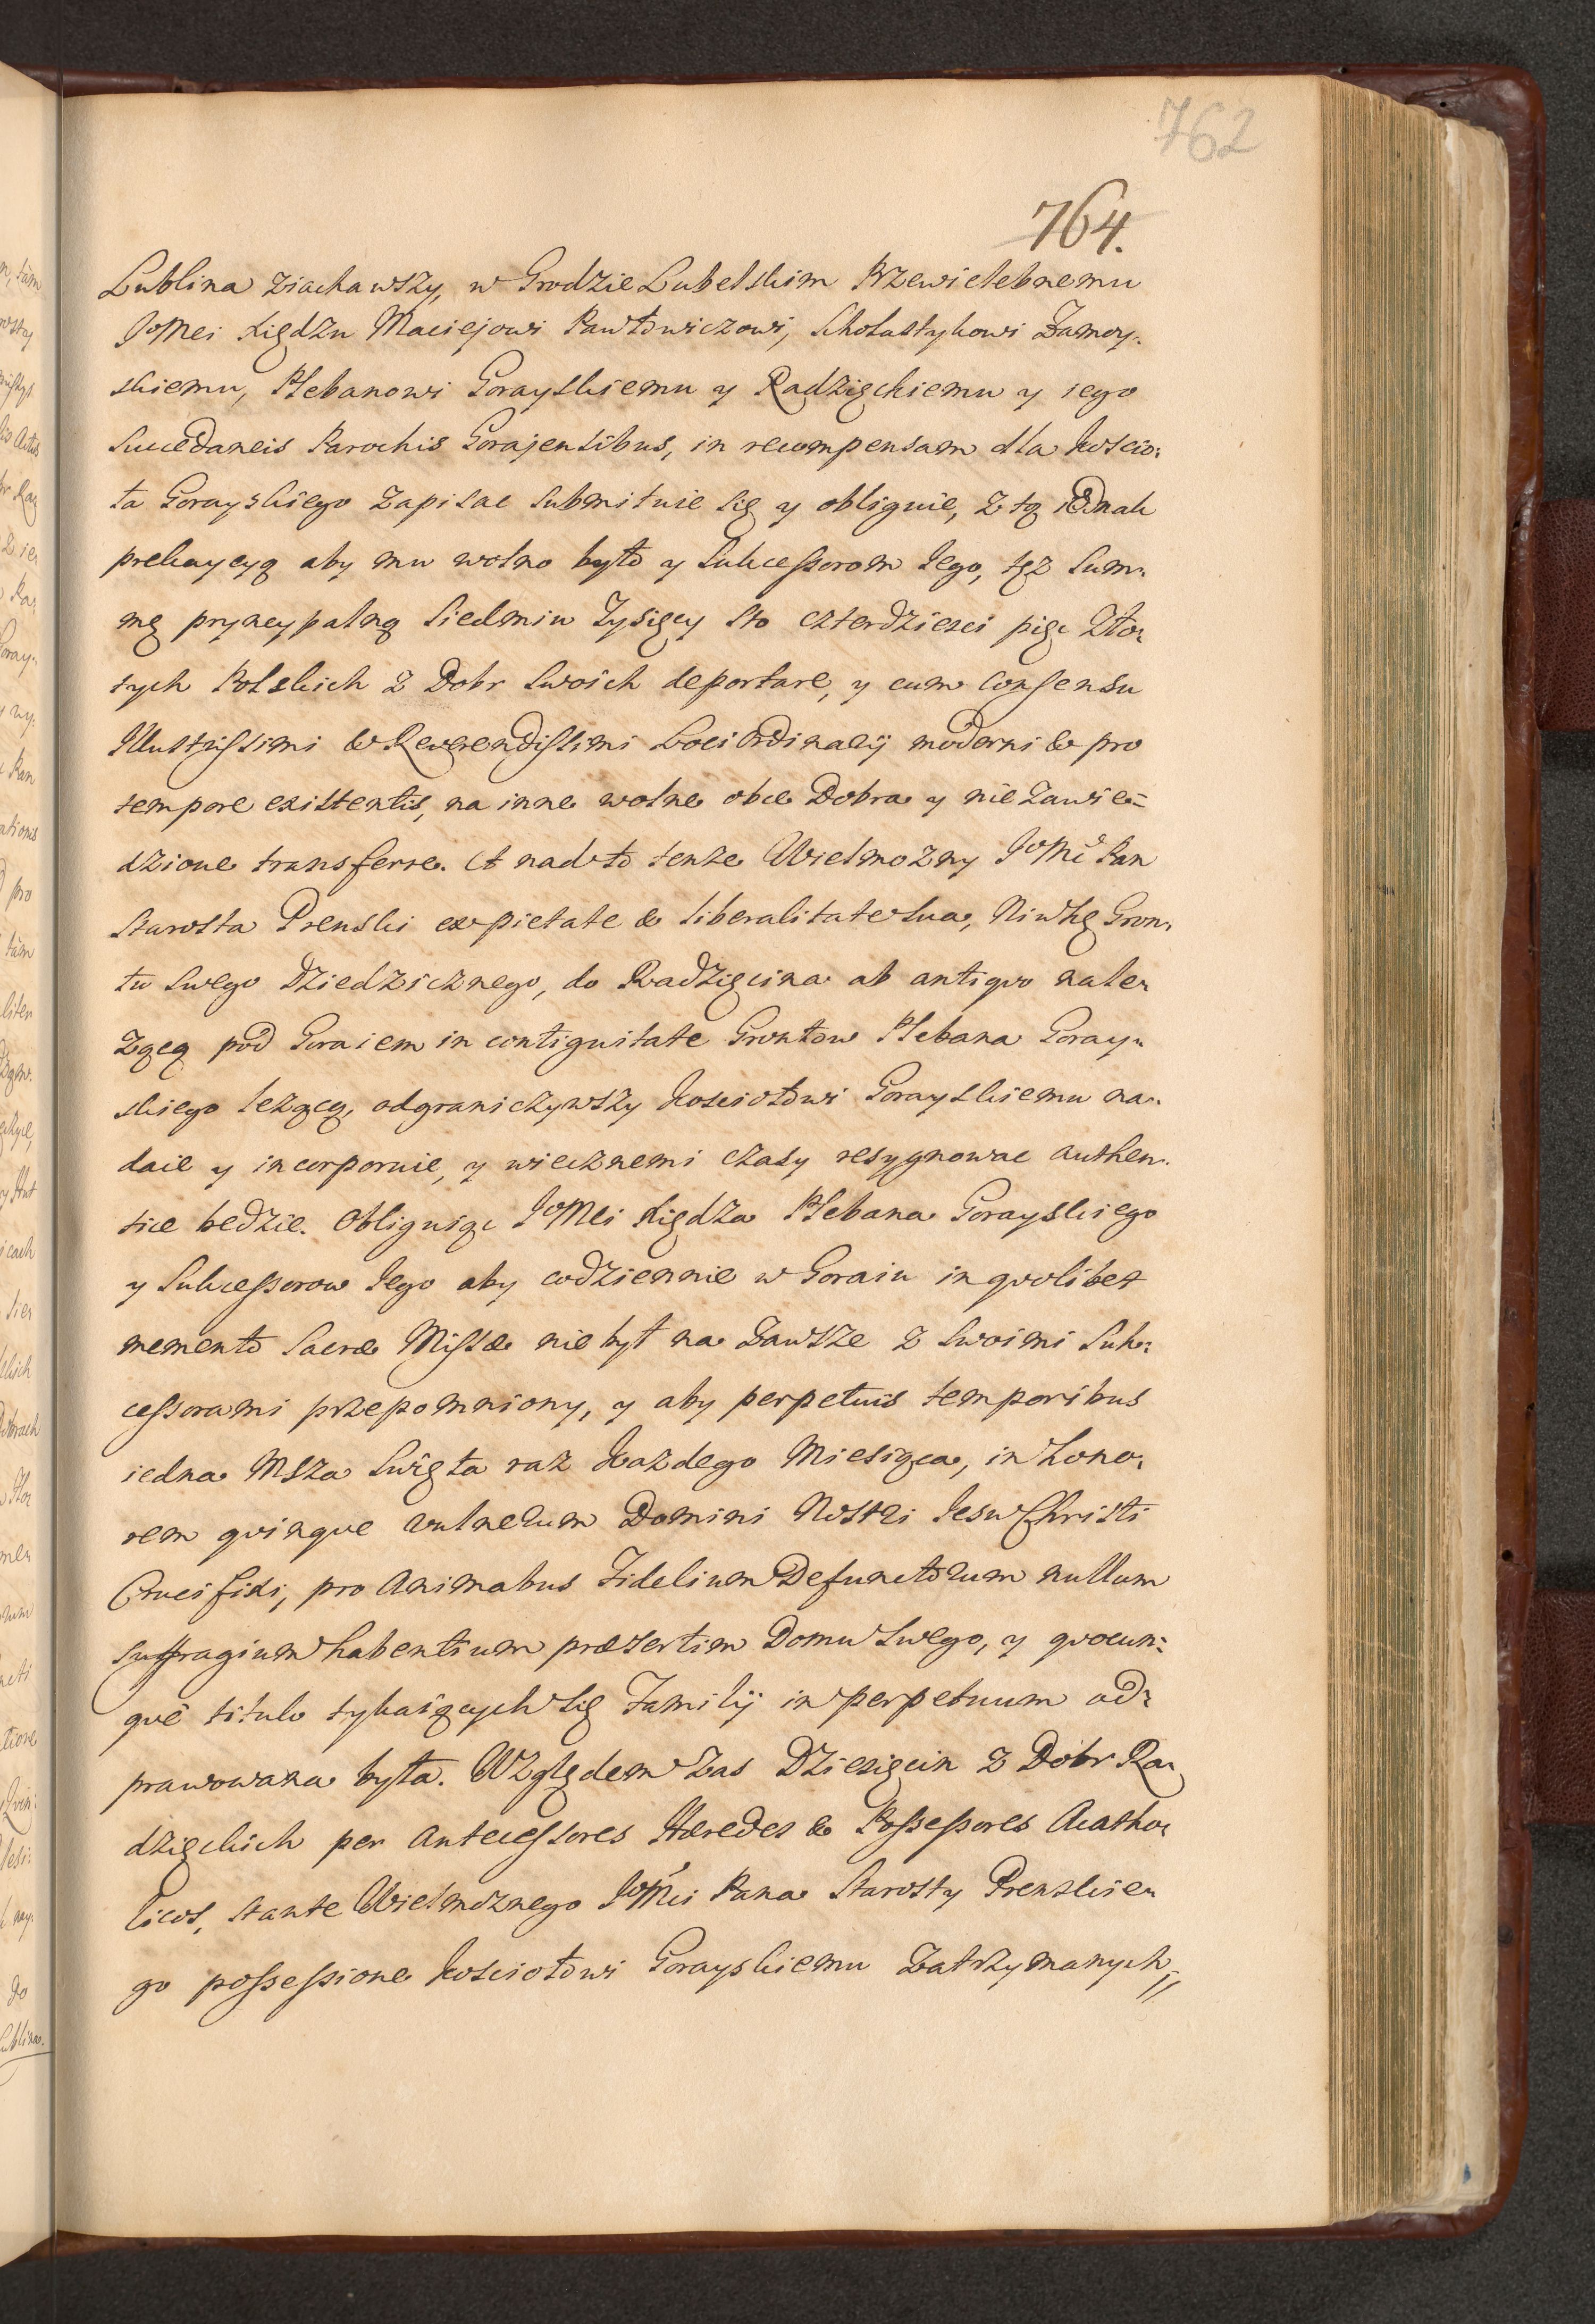 762
764.
Lublina ziachawszy, w Grodzie Lubelskim Przewielebnemu
JoMci Xiędzu Maciejowi Pawłowiczowi, Scholastykowi Zamoy:
skiemu, Plebanowi Gorayskiemu y Radzięckiemu y iego
Succedaneis Parochis Gorajensibus, in recompensam dla Koscio:
ła Gorayskiego zapisac submituie się y obliguie, z tą iednak
prekaycyą aby mu wolno było y Sukcessorom Jego, tęż Sum:
mę pryncypalną Siedmiu Tysięcy Sto czterdziesci pięc Zło:
tych Polskich z Dobr Swoich deportare, y cum Consensu
Illustrissimi & Reverendissimi Loci Ordinarij moderni & pro
tempore existentis, na inne wolne obce Dobra y nie zawie=
dzione transferre. A nadto tenze Wielmozny JoMć Pan
Starosta Prenski ex pietate & liberalitate sua, Niwkę Gron:
tu Swego Dziedzicznego, do Radzięcina ab antiquo nale:
zącą pod Goraiem in contiguitate Grontow Plebana Goray:
skiego lezącą, odgraniczywszy Kosciołowi Gorayskiemu na:
daie y incorporuie, y wiecznemi czasy resygnowac authen:
tice bedzie. Obliguiąc JoMci Xiędza Plebana Gorayskiego
y Sukcessorow Jego aby codziennie w Goraiu in quolibet
memento Sacræ Missæ nie był na zawsze z Swoimi Suk:
cessorami przepomniony, y aby perpetuis temporibus
iedna Msza Swięta raz Kazdego Miesiąca, in hono:
rem quinque vulnerum Domini Nostri Jesu Christi
Crucifixi, pro Animabus Fidelium Defunctorum nullum
suffragium habentium præsertim Domu Swego, y quocun:
que titulo tykaiących się Familij in perpetuum od:
prawowana była. Względem zas Dziesięcin z Dobr Ra:
dzięckich per Antecessores Hæredes & Possessores Acatho:
licos, stante Wielmoznego JoMci Pana Starosty Prenskie:
go possessione Kosciołowi Gorayskiemu zatrzymanych,